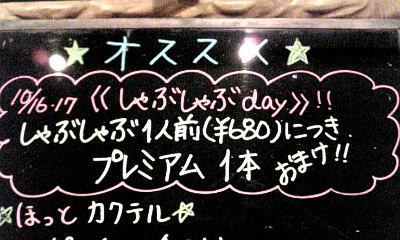 ★オススメ★
10/16.17 《しゃぶしゃぶday》!!
しゃぶしゃぶ1人前(¥680)につき
プレミアム 1本 おまけ!!
☆ほっとカクテル☆